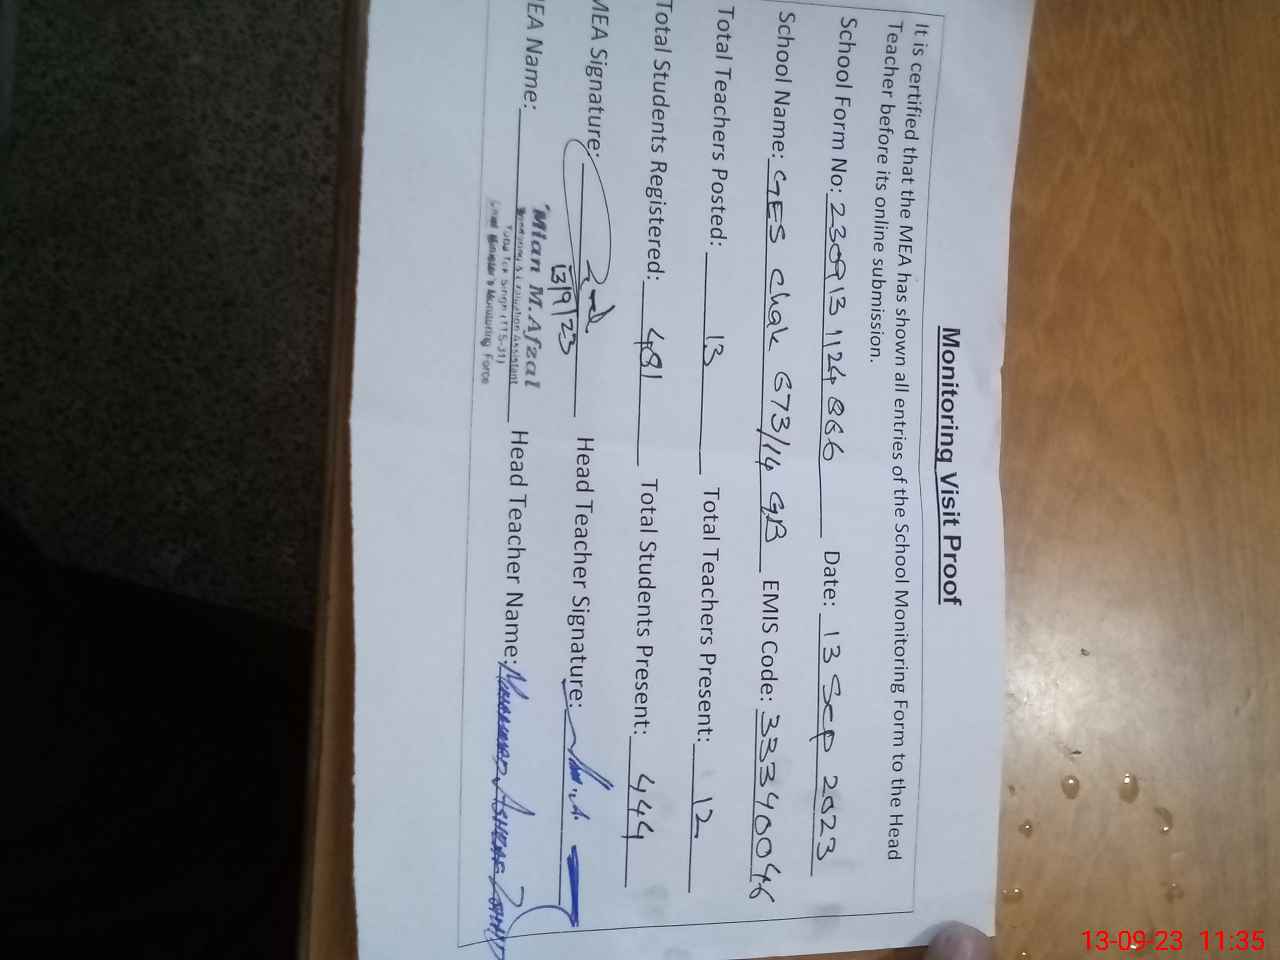 Monitoring Visit Proof
It is certified that the MEA has shown all entries of the School Monitoring Form to the Head
Teacher before its online submission.
School Form No: 230913 1124866 Date: 13 Sep 2023
School Name: GES Chak 673/14 GB EMIS Code: 33340046
Total Teachers Posted: 13 Total Teachers Present: 12
Total Students Registered: 481 Total Students Present: 444
MEA Signature: Head Teacher Signature:
13/9/23
EA Name: Mian M.Afzal Head Teacher Name: Muhammad Ashraf
Monitoring & Evaluation Assistant
Toba Tek Singh (TTS-31)
Chief Minister's Monitoring Force
13-09-23 11:35